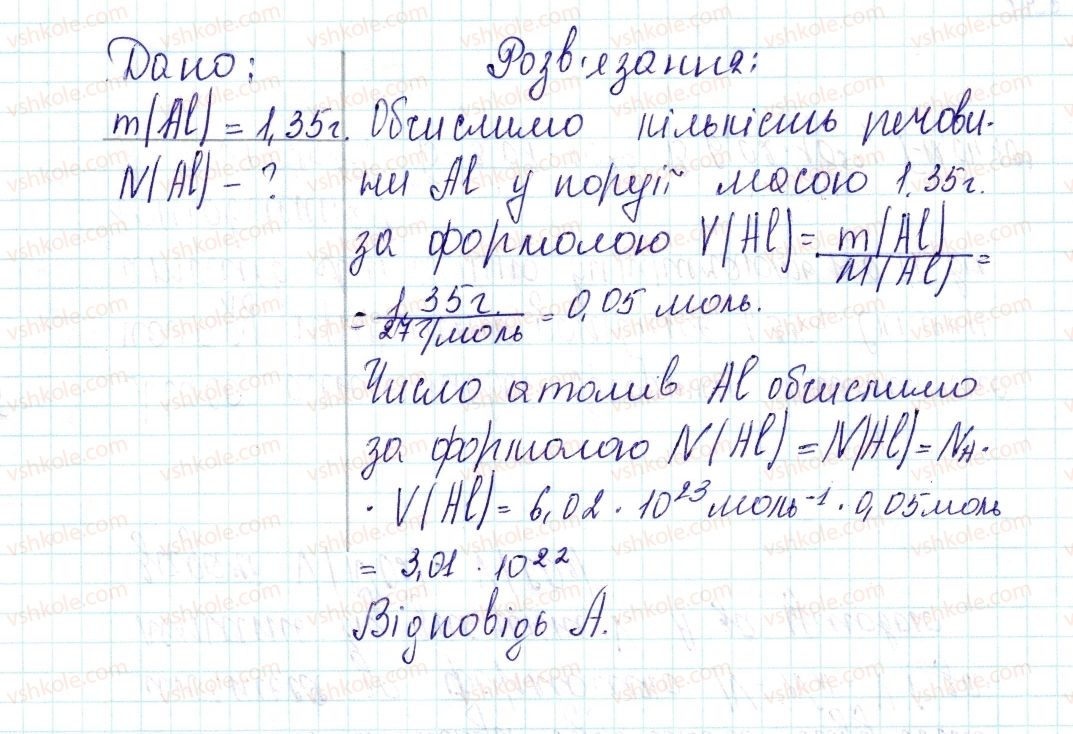 Дано:
m(Al) = 1,35г.
N(Al) - ?
Розв'язання:
Обчислимо кількість речови-
ни Al у порції масою 1,35г.
за формолою V(Al) = m(Al)/M(Al) =
= 1,35г./27г/моль = 0,05 моль.
Число атомів Al обчислимо
за формолою N(Al) = N(Al) = NA ·
· V(Al) = 6,02 · 10²³ моль⁻¹ · 0,05 моль
= 3,01 · 10²²
Відповідь А.